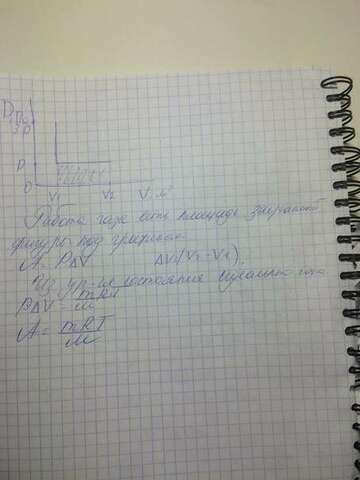 P, Па
3P
P
0
V₁ V₂ V, м³
Работа газа есть площадь
фигуры под графиком
A = PΔV ΔV=(V₂-V₁)
Из ур-ия состояния идеального газа
PΔV = mRT/M
A = mRT/M